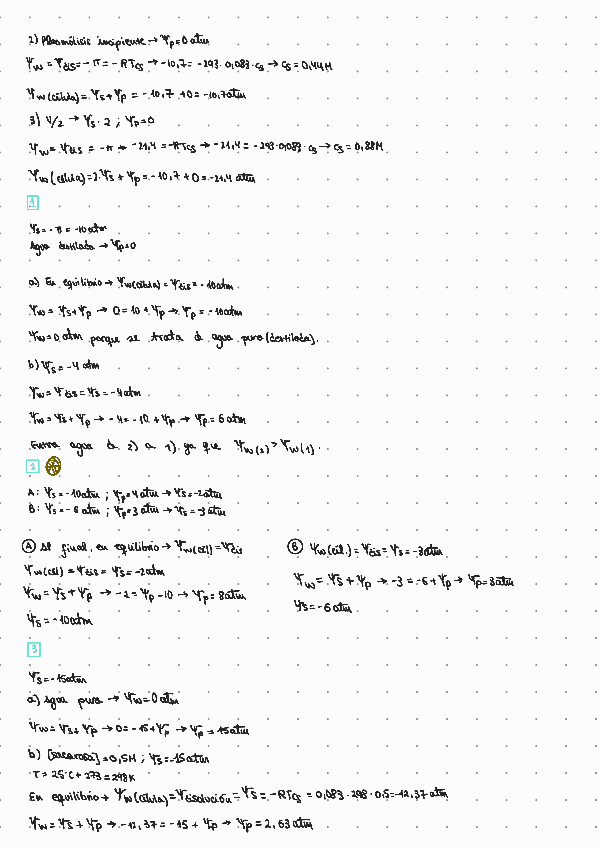 2) Plasmólisis incipiente → Ψp=0 atm
Ψw = Ψdis = -π = -RTcs → -10,7 = -293·0,083·cs → cs = 0,44M
Ψw (célula) = Ψs + Ψp = -10,7 + 0 = -10,7 atm
3) V/2 → Ψs · 2 ; Ψp=0
Ψw = Ψdis = -π → -21,4 = -RTcs → -21,4 = -293·0,083·cs → cs = 0,88M
Ψw (célula) = 2·Ψs + Ψp = -10,7 + 0 = -21,4 atm
1
Ψs = -π = -10 atm
Agua destilada → Ψp=0
a) En equilibrio → Ψw(célula) = Ψdis = -10 atm
Ψw = Ψs + Ψp → 0 = 10 + Ψp → Ψp = -10 atm
Ψw = 0 atm porque se trata de agua pura (destilada).
b) Ψs = -4 atm
Ψw = Ψdis = Ψs = -4 atm
Ψw = Ψs + Ψp → -4 = -10 + Ψp → Ψp = 6 atm
Entra agua de 2) a 1) ya que Ψw(2) > Ψw(1).
2
A: Ψs = -10 atm ; Ψp = 4 atm → Ψs = -2 atm
B: Ψs = -6 atm ; Ψp = 3 atm → Ψs = -3 atm
A Al final, en equilibrio → Ψw(cel) = Ψdis
Ψw(cel) = Ψdis = Ψs = -2 atm
Ψw = Ψs + Ψp → -2 = Ψp - 10 → Ψp = 8 atm
Ψs = -10 atm
B Ψw (cél.) = Ψdis = Ψs = -3 atm
Ψw = Ψs + Ψp → -3 = -6 + Ψp → Ψp = 3 atm
Ψs = -6 atm
3
Ψs = -15 atm
a) Agua pura → Ψw = 0 atm
Ψw = Ψs + Ψp → 0 = -15 + Ψp → Ψp = 15 atm
b) [sacarosa] = 0,5M ; Ψs = -15 atm
T = 25°C + 273 = 298K
En equilibrio → Ψw (célula) = Ψdisolución = Ψs = -RTcs = 0,083·298·0,5 = -12,37 atm
Ψw = Ψs + Ψp → -12,37 = -15 + Ψp → Ψp = 2,63 atm